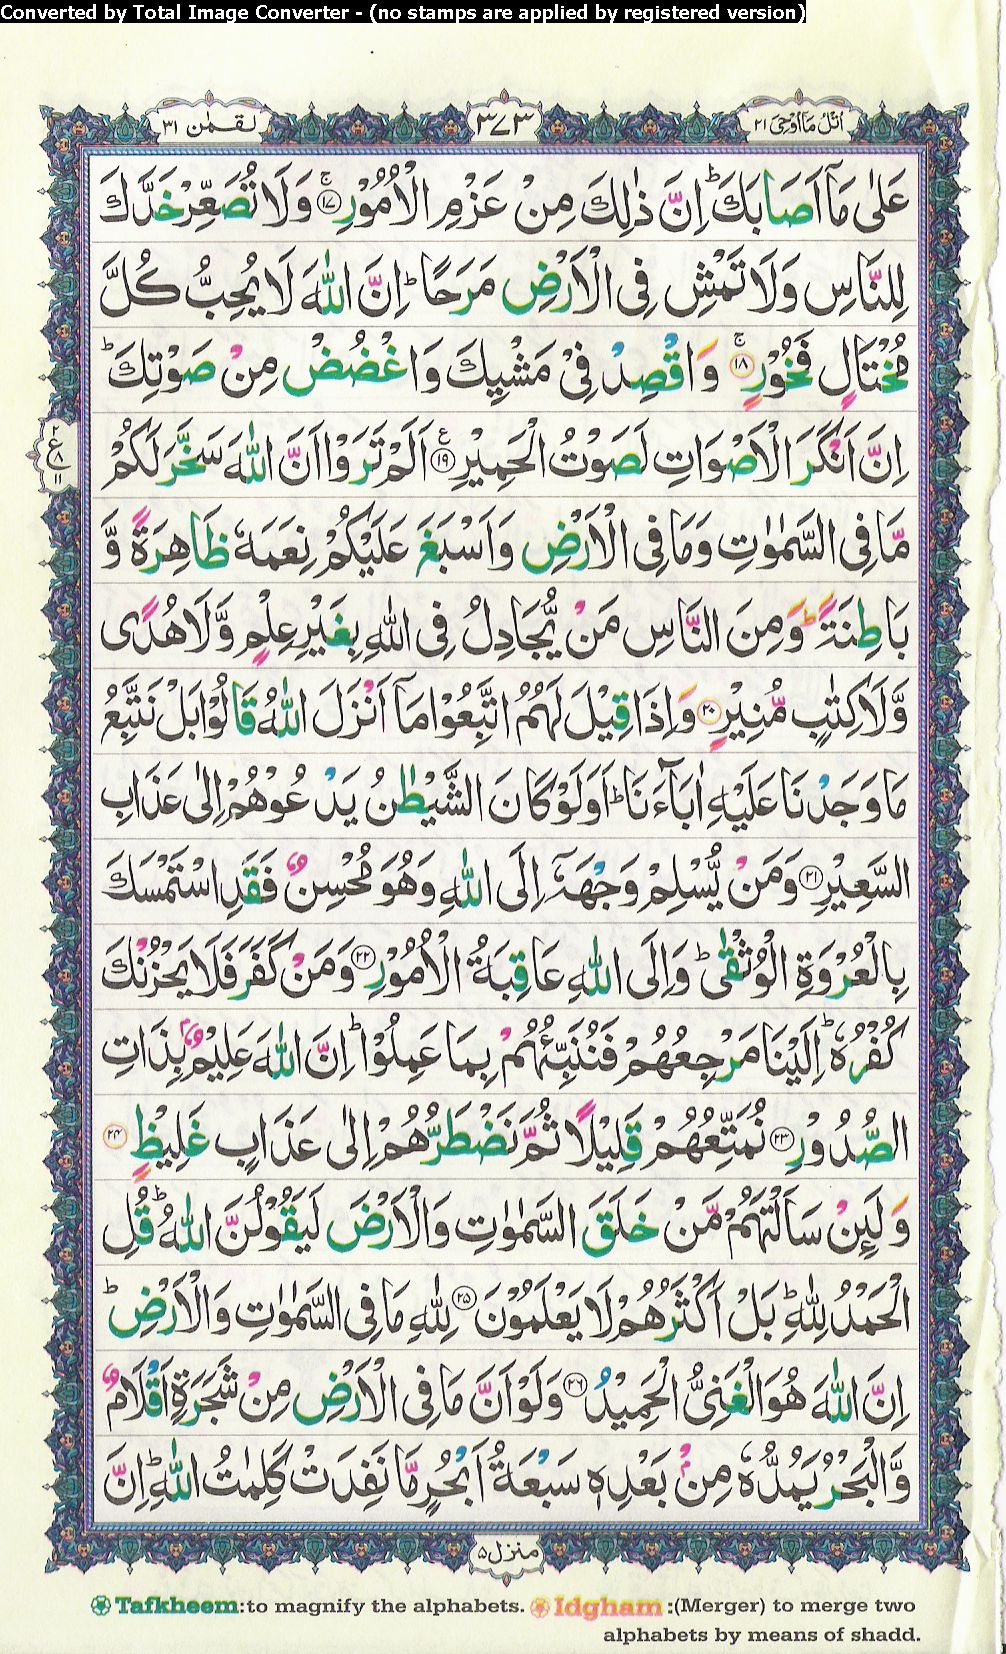 Converted by Total Image Converter - (no stamps are applied by registered version)
اُتْلُ مَاۤ اُوْحِیَ ٢١
٣٧٣
لقمٰن ٣١
عَلٰى مَاۤ اَصَابَكَ ؕ اِنَّ ذٰلِكَ مِنْ عَزْمِ الْاُمُوْرِ ۚ ﴿١٧﴾ وَلَا تُصَعِّرْ خَدَّكَ
لِلنَّاسِ وَلَا تَمْشِ فِى الْاَرْضِ مَرَحًا ؕ اِنَّ اللّٰهَ لَا يُحِبُّ كُلَّ
مُخْتَالٍ فَخُوْرٍ ۚ ﴿١٨﴾ وَاقْصِدْ فِىْ مَشْيِكَ وَاغْضُضْ مِنْ صَوْتِكَ ؕ
اِنَّ اَنْكَرَ الْاَصْوَاتِ لَصَوْتُ الْحَمِيْرِ ﴿١٩﴾ ع اَلَمْ تَرَوْا اَنَّ اللّٰهَ سَخَّرَ لَكُمْ
٢
ع
٨
١١
مَّا فِى السَّمٰوٰتِ وَمَا فِى الْاَرْضِ وَاَسْبَغَ عَلَيْكُمْ نِعَمَهٗ ظَاهِرَةً وَّ
بَاطِنَةً ؕ وَمِنَ النَّاسِ مَنْ يُّجَادِلُ فِى اللّٰهِ بِغَيْرِ عِلْمٍ وَّلَا هُدًى
وَّلَا كِتٰبٍ مُّنِيْرٍ ﴿٢٠﴾ وَاِذَا قِيْلَ لَهُمُ اتَّبِعُوْا مَاۤ اَنْزَلَ اللّٰهُ قَالُوْا بَلْ نَتَّبِعُ
مَا وَجَدْنَا عَلَيْهِ اٰبَآءَنَا ؕ اَوَلَوْ كَانَ الشَّيْطٰنُ يَدْعُوْهُمْ اِلٰى عَذَابِ
السَّعِيْرِ ﴿٢١﴾ وَمَنْ يُّسْلِمْ وَجْهَهٗۤ اِلَى اللّٰهِ وَهُوَ مُحْسِنٌ فَقَدِ اسْتَمْسَكَ
بِالْعُرْوَةِ الْوُثْقٰى ؕ وَاِلَى اللّٰهِ عَاقِبَةُ الْاُمُوْرِ ﴿٢٢﴾ وَمَنْ كَفَرَ فَلَا يَحْزُنْكَ
كُفْرُهٗ ؕ اِلَيْنَا مَرْجِعُهُمْ فَنُنَبِّئُهُمْ بِمَا عَمِلُوْا ؕ اِنَّ اللّٰهَ عَلِيْمٌۢ بِذَاتِ
الصُّدُوْرِ ﴿٢٣﴾ نُمَتِّعُهُمْ قَلِيْلًا ثُمَّ نَضْطَرُّهُمْ اِلٰى عَذَابٍ غَلِيْظٍ ﴿٢٤﴾
وَلَئِنْ سَاَلْتَهُمْ مَّنْ خَلَقَ السَّمٰوٰتِ وَالْاَرْضَ لَيَقُوْلُنَّ اللّٰهُ ؕ قُلِ
الْحَمْدُ لِلّٰهِ ؕ بَلْ اَكْثَرُهُمْ لَا يَعْلَمُوْنَ ﴿٢٥﴾ لِلّٰهِ مَا فِى السَّمٰوٰتِ وَالْاَرْضِ ؕ
اِنَّ اللّٰهَ هُوَ الْغَنِىُّ الْحَمِيْدُ ﴿٢٦﴾ وَلَوْ اَنَّ مَا فِى الْاَرْضِ مِنْ شَجَرَةٍ اَقْلَامٌ
وَّالْبَحْرُ يَمُدُّهٗ مِنْۢ بَعْدِهٖ سَبْعَةُ اَبْحُرٍ مَّا نَفِدَتْ كَلِمٰتُ اللّٰهِ ؕ اِنَّ
منزل ٥
Tafkheem:to magnify the alphabets. Idgham :(Merger) to merge two
alphabets by means of shadd.